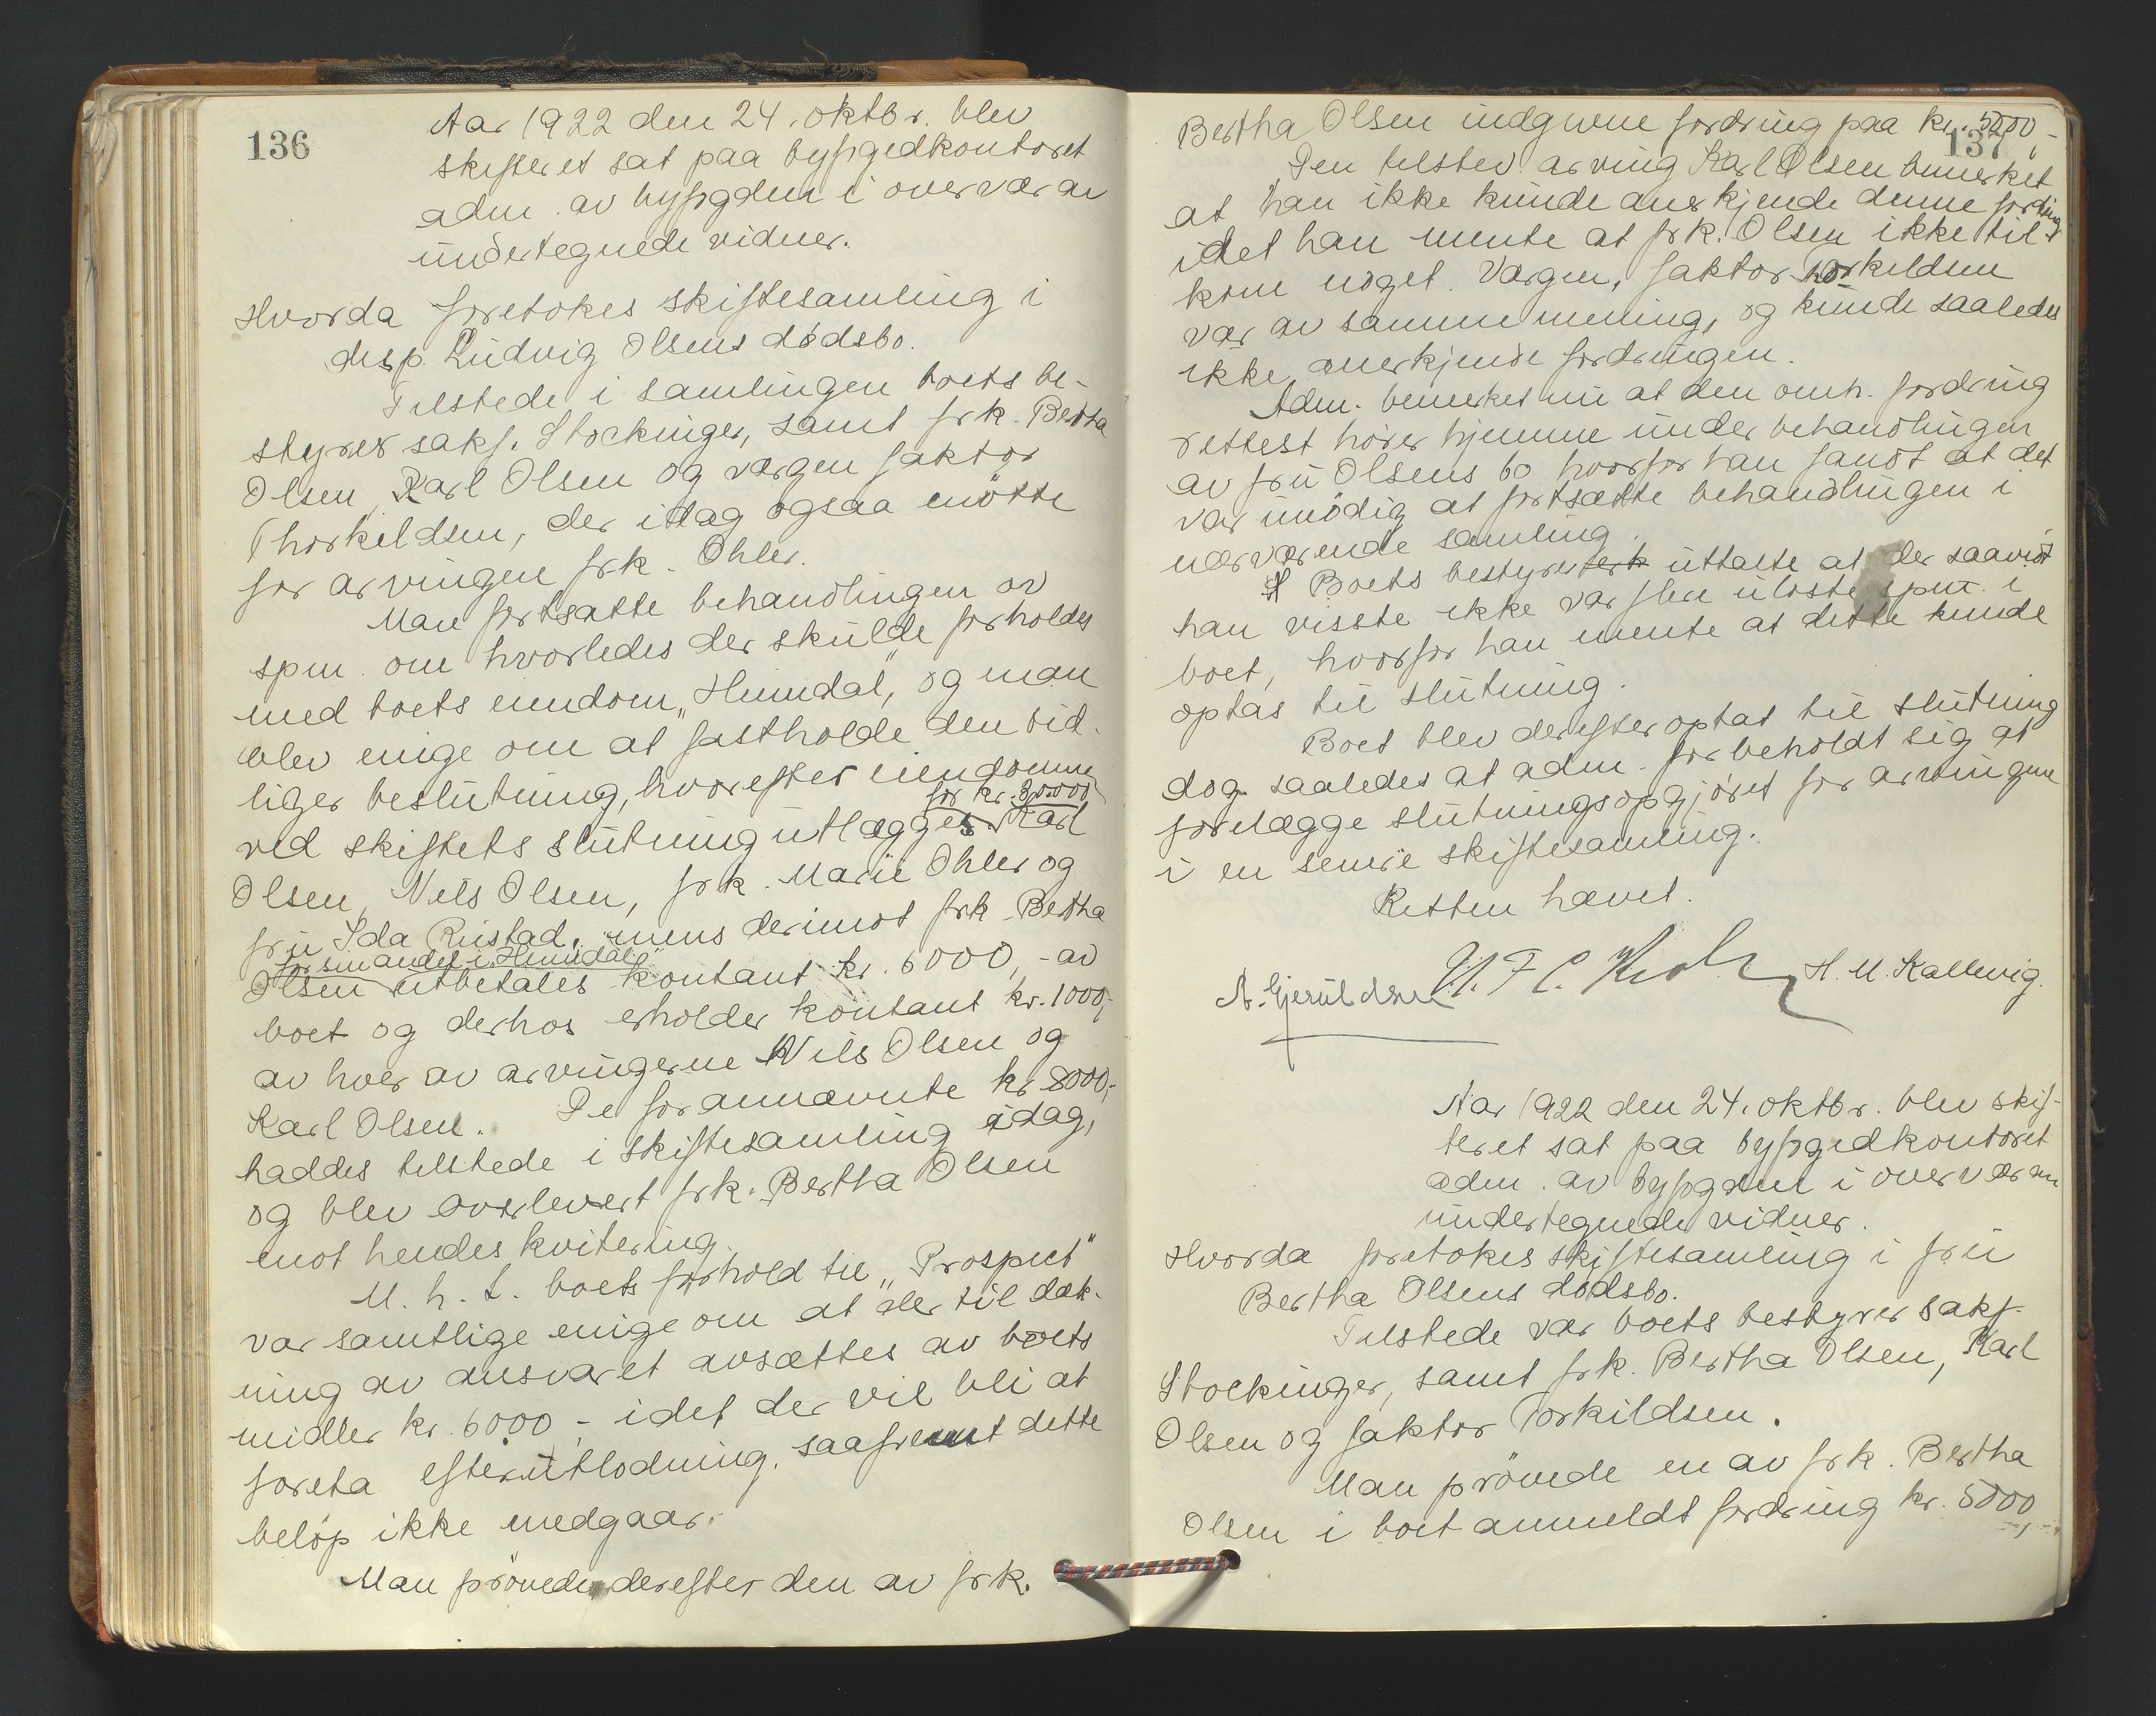 136
Aar 1922 den 24. oktbr. blev
skifteret sat paa byfogedkontoret
adm. av byfogden i overvær av
undertegnede vidner.
Hvorda foretokes skiftesamling i
disp. Ludvig Olsens dødsbo.
Tilstede i samlingen boets be-
styrer sakf. Stockinger, samt frk. Bertha
Olsen, Karl Olsen og værgen faktor
Thorkildsen, der idag ogsaa møtte
for arvingen frk. Ohler.
Man fortsatte behandlingen av
spm. om hvorledes der skulde forholdes
med boets eiendom „Heimdal", og man
blev enige om at fastholde den tid-
ligere beslutning, hvorefter eiendommen
for kr. 30000
ved skiftets slutning utlægges Karl
Olsen, Nils Olsen, frk. Marie Ohler og
fru Ida Rustad, mens derimot frk. Bertha
for sin andel i „Heimdal"
Olsen utbetales kontant kr. 6000,- av
boet og derhos erholder kontant kr. 1000,-
av hver av arvingerne Nils Olsen og
Karl Olsen. De forannævnte kr. 8000,-
haddes tilstede i skiftesamling idag,
og blev overlevert frk. Bertha Olsen
mot hendes kvitering.
M. h. t. boets forhold til „Prospect"
var samtlige enige om at der til dæk-
ning av ansvaret avsættes av boets
midler kr. 6000,- idet der vil bli at
foreta efterutlodning, saafremt dette
beløp ikke medgaar.
Man prøvede derefter den av frk.
137
Bertha Olsen indgivne fordring paa kr. 5000,-
Den tilstedev. arving Karl Olsen bemerket
at han ikke kunde anerkjende denne fordring
idet han mente at frk. Olsen ikke til-
kom noget. Værgen, faktor Torkildsen
var av samme mening, og kunde saaledes
ikke anerkjende fordringen.
Adm. bemerket nu at den omh. fordring
rettest hører hjemme under behandlingen
av fru Olsens bo hvorfor han fandt at det
var unødig at fortsætte behandlingen i
nærværende samling.
Boets bestyrer uttalte at der saavidt
han visste ikke var flere uløste spm. i
boet, hvorfor han mente at dette kunde
optas til slutning.
Boet blev derefter optat til slutning
dog saaledes at adm. forbeholdt sig at
forelægge slutningsopgjøret for arvingene
i en senere skiftesamling.
Retten hævet.
A. Gjeruldsen H. M. Kallevig
Aar 1922 den 24. oktbr. blev skif-
teret sat paa byfogedkontoret
adm. av byfogden i overvær av
undertegnede vidner.
Hvorda foretokes skiftesamling i fru
Bertha Olsens dødsbo.
Tilstede var boets bestyrer sakf.
Stockinger, samt frk. Bertha Olsen, Karl
Olsen og faktor Torkildsen.
Man prøvede en av frk. Bertha
Olsen i boet anmeldt fordring kr. 5000,-